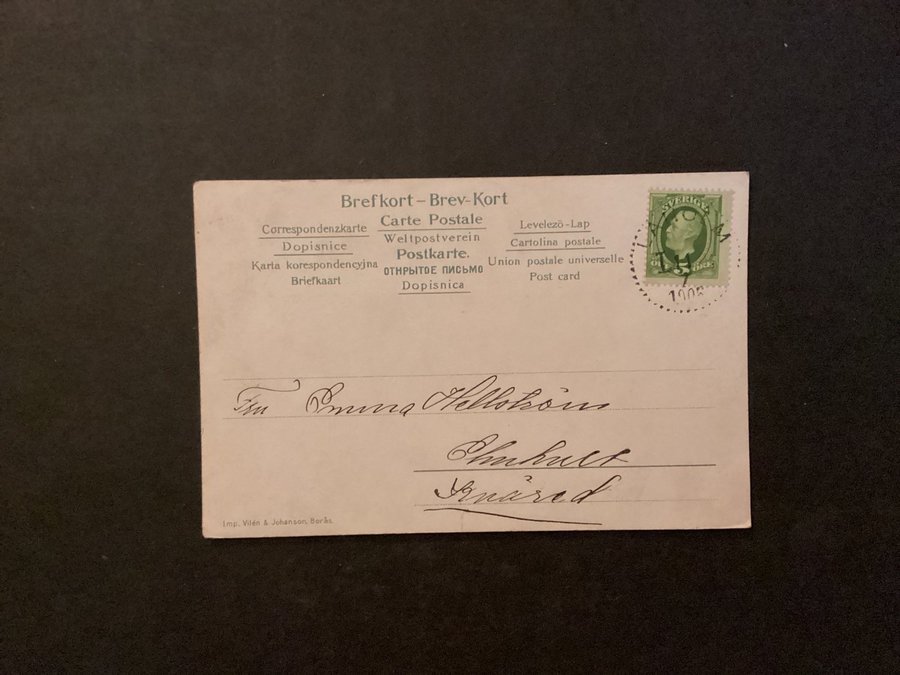 Brefkort – Brev-Kort
Carte Postale
Correspondenzkarte
Weltpostverein
Levelező-Lap
Dopisnice
Postkarte.
Cartolina postale
Karta korespondencyjna
ОТКРЫТОЕ ПИСЬМО
Union postale universelle
Briefkaart
Dopisnica
Post card
SVERIGE
5
ÖRE
LAHOLM
190
Fru Emma Hellström
Knäred
Imp. Vilén & Johanson, Borås.